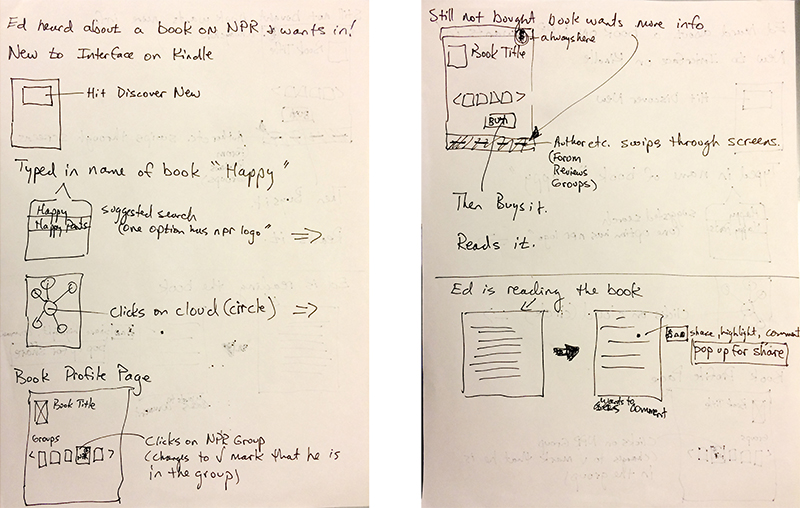 Ed heard about a book on NPR & wants in!
New to Interface on Kindle
Hit Discover New
Typed in name of book "Happy"
Happy
Happy Pants
suggested search
(one option has npr logo"
Clicks on cloud (circle)
Book Profile Page
Book Title
Groups
Clicks on NPR Group
(changes to √ mark that he is
in the group)
Still not bought book wants more info
always here
Book Title
Buy
Author etc. swips through screens.
(Forum
Reviews
Groups)
Then Buys it.
Reads it.
Ed is reading the book
share, highlight, comment
pop up for share
wants to
comment